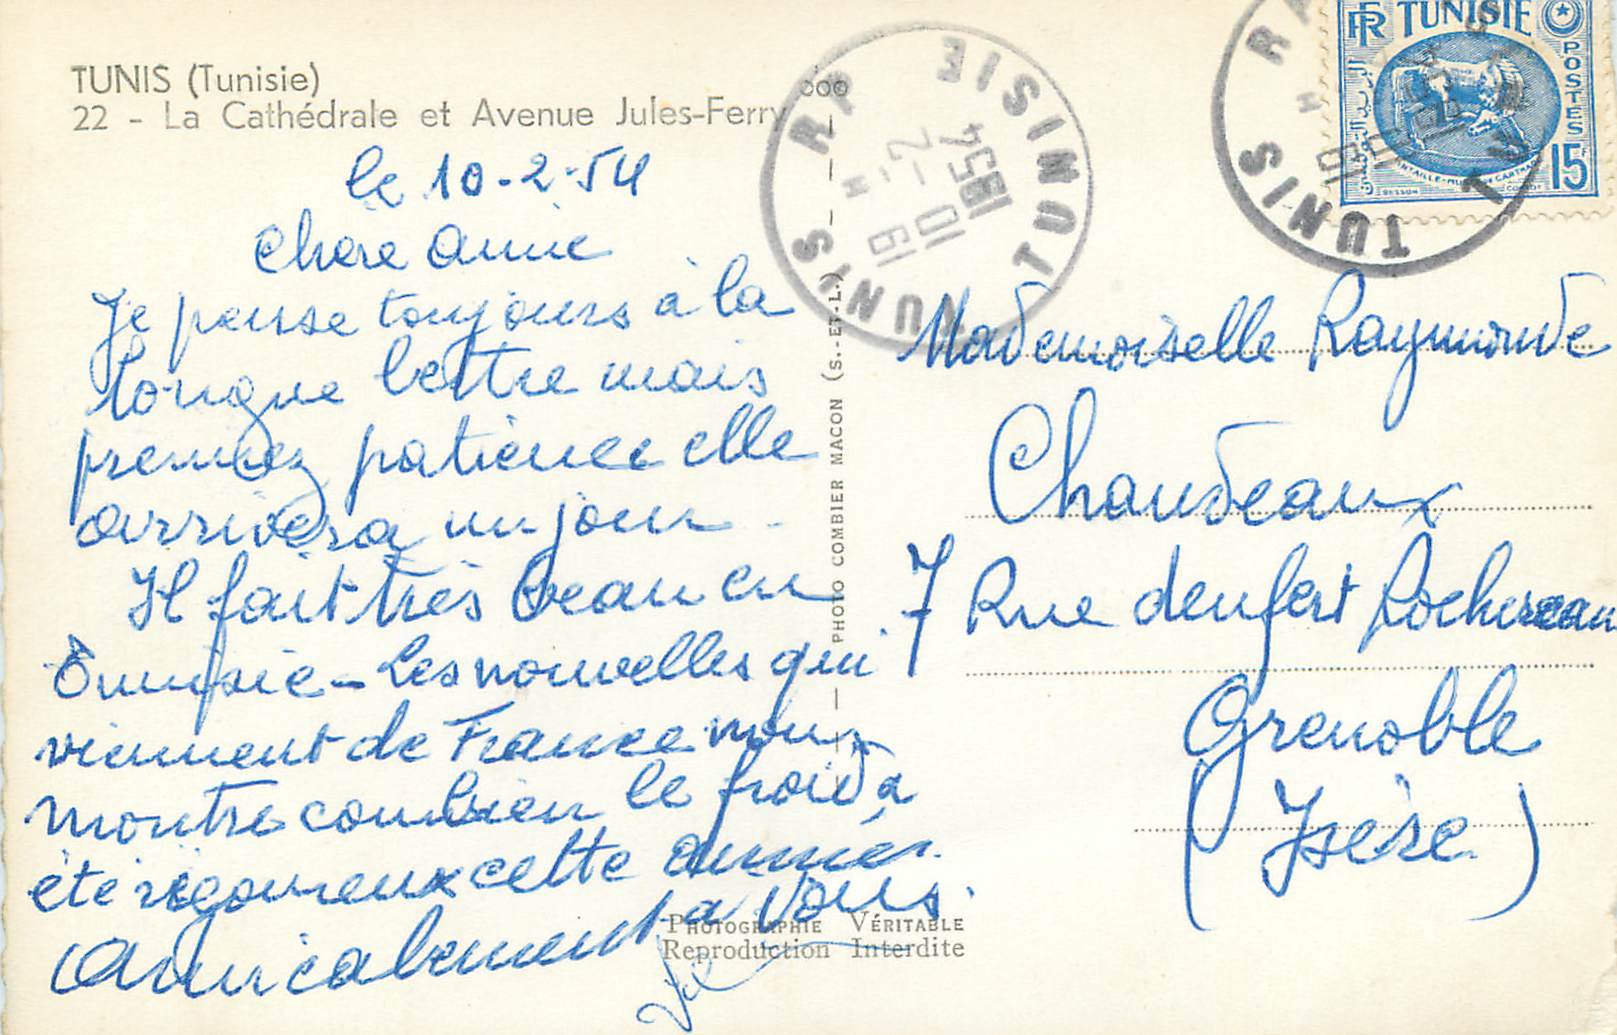 TUNIS (Tunisie)
22 - La Cathédrale et Avenue Jules-Ferry
le 10-2-54
Chère Amie
Je pense toujours à la
longue lettre mais
prennez patience elle
arrivera un jour.
Il fait très beau en
Tunisie - Les nouvelles qui
viennent de France nous
montre combien le froid a
été rigoureux cette année.
Amicalement à vous.
PHOTO COMBIER MACON (S.-ET-L.)
PHOTOGRAPHIE VÉRITABLE
Reproduction Interdite
TUNIS RP TUNISIE
19 H
10 - 2
1954
RF TUNISIE
POSTES
15F
TUNIS
Mademoiselle Raymonde
Chaudeaux
7 Rue denfert Rochereau
Grenoble
(Isère)